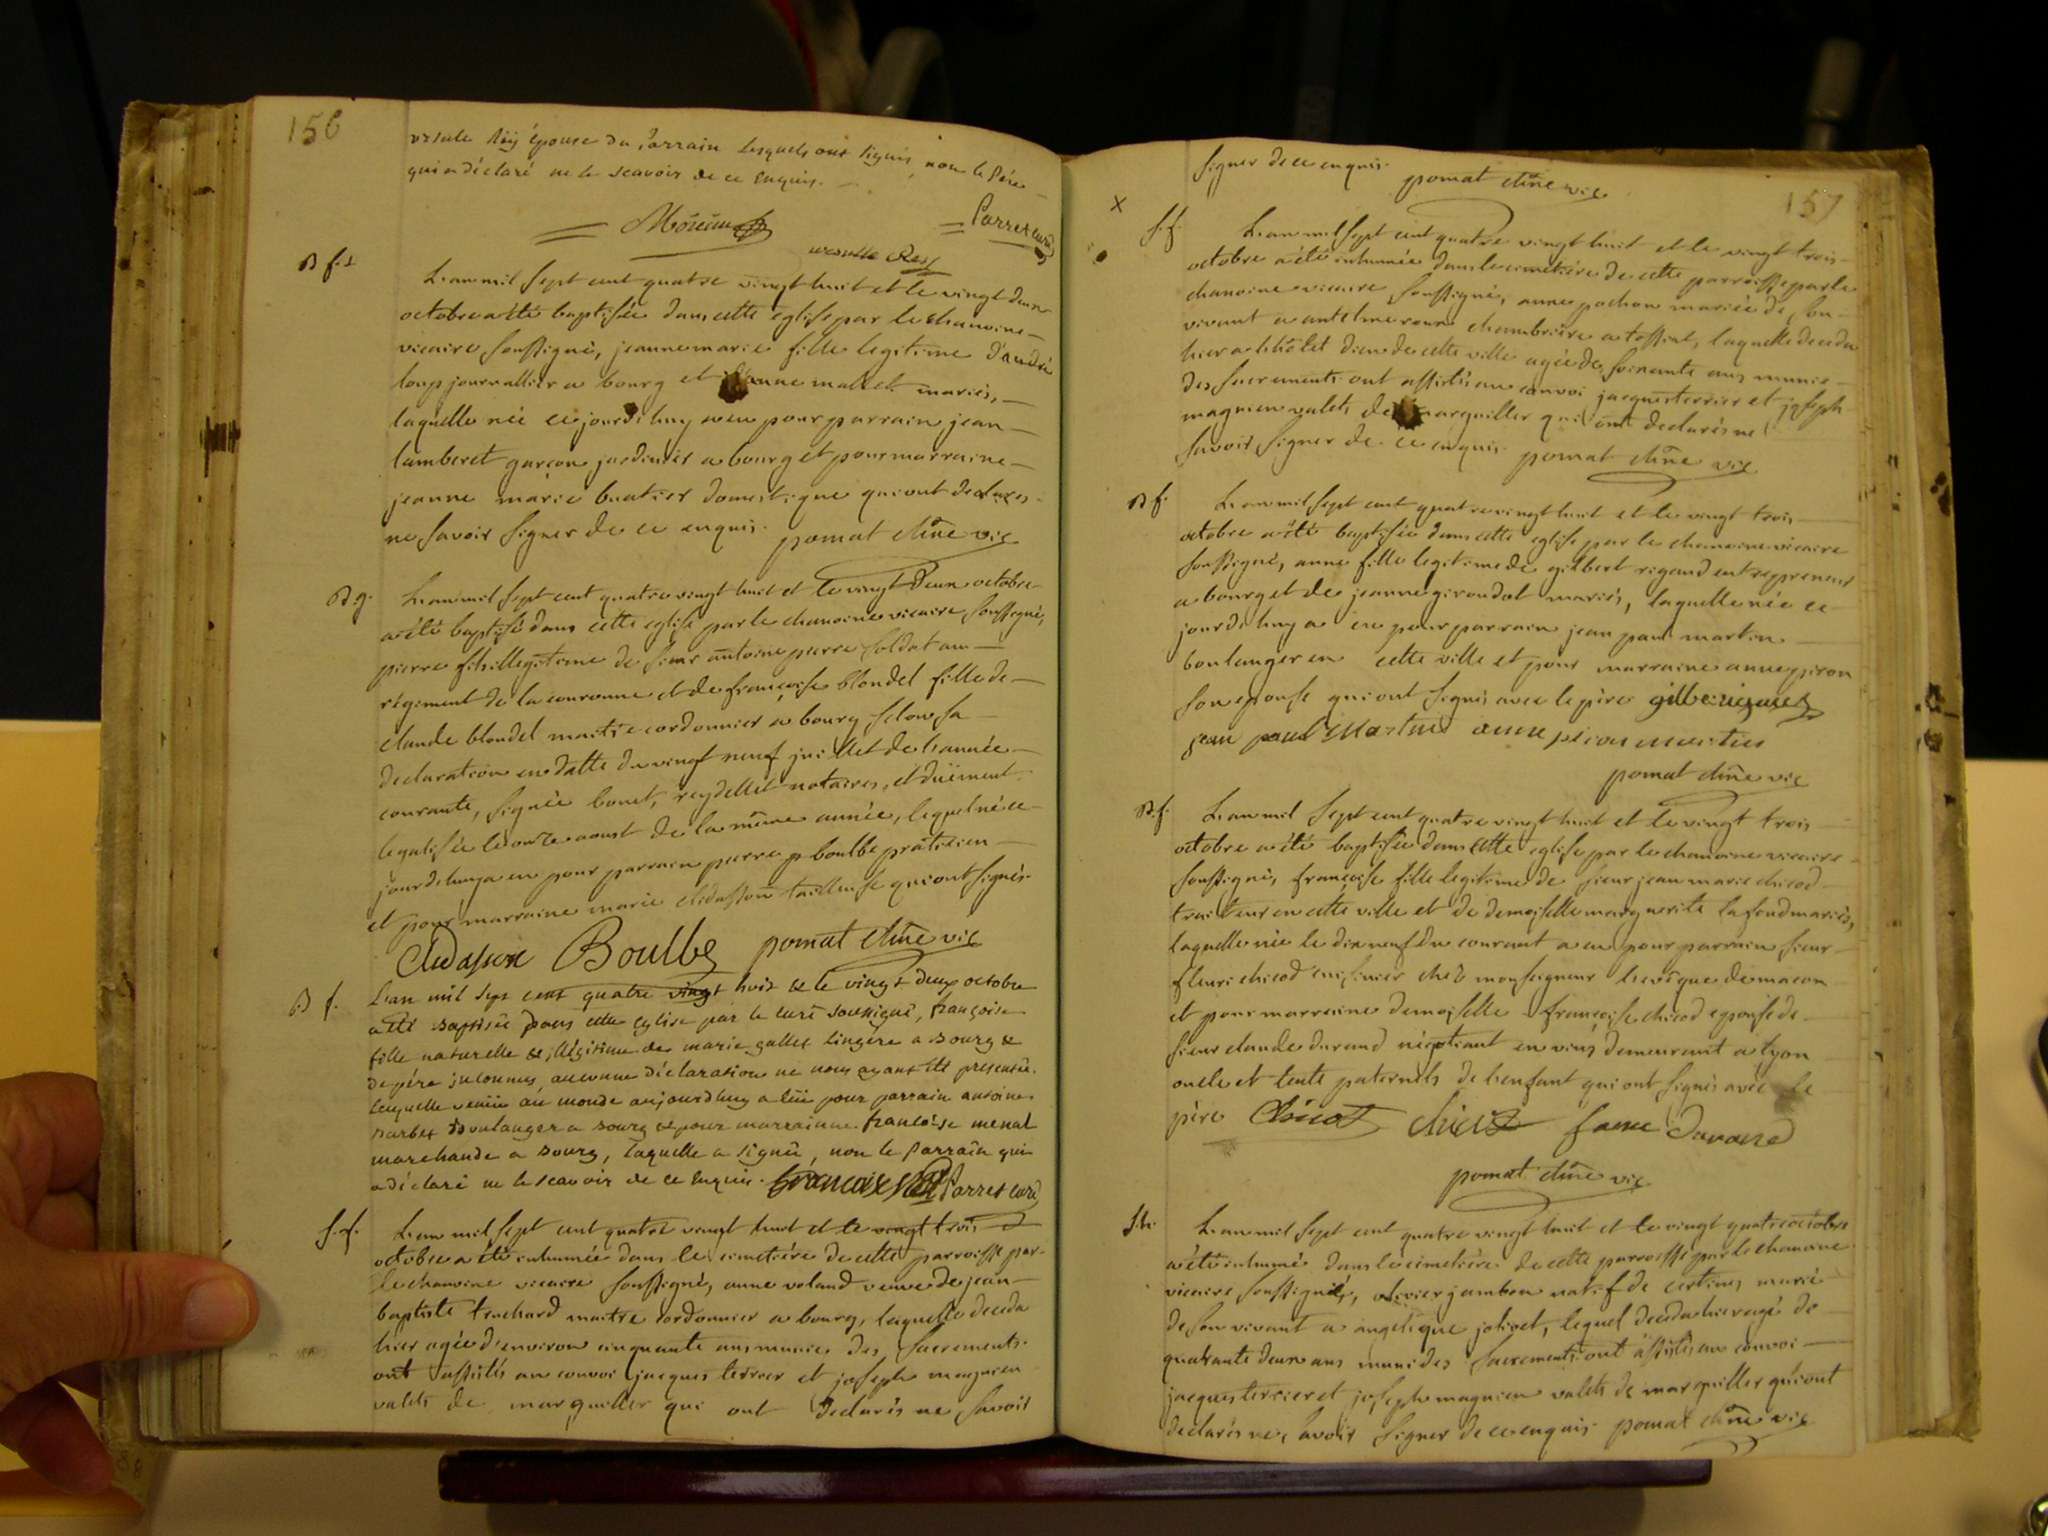 156
ursule Rëÿ épouse du Parrain lesquels ont signés, non le Père
qui a déclaré ne le scavoir de ce Enquis.
Parret curé
B f. L
L'an mil sept cent quatre vingt huit et le vingt deux
octobre a été baptisée dans cette eglise par le chanoine
vicaire soussigné, jeanne marie fille legitime d'andré
loup journallier a bourg et mariés,
laquelle née ce jourd'huy a eu pour parrain jean
lamberet garçon jardinier a bourg et pour marraine
jeanne marie buatier domestique qui ont declarés
ne savoir signer de ce enquis. pomat chne vic
B g.
L'an mil sept cent quatre vingt huit et le vingt deux octobre
a été baptisé dans cette eglise par le chanoine vicaire soussigné,
pierre fils illegitime de sieur antoine pierre soldat au
régiment de la couronne et de françoise blondel fille de
claude blondel maitre cordonnier a bourg selon sa
declaration en datte du vingt neuf juillet de l'année
courante, signée bouet, reydellet notaires, et duëment
legalisée le onze aoust de la même année, lequel né ce
jourd'huy a eu pour parrain pierre p boulbe pratitien
et pour marraine marie chdasson tailleuse qui ont signés.
Boulbe pomat chne vic
B f.
L'an mil sept cent quatre vingt huit et le vingt deux octobre
a été Baptisée Dans cette eglise par le curé soussigné, françoise
fille naturelle et illégitime de marie gallet lingère a Bourg et
de père inconnus, aucunne déclaration ne nous ayant été presentée.
laquelle venüe au monde aujourdhuy a eüe pour parrain antoine
Barbet Boulanger a Bourg et pour marrainne françoise menat
marchande a Bourg, laquelle a signée, non le Parrain qui
a déclaré ne le scavoir de ce Enquis. Parret curé
S. f.
L'an mil sept cent quatre vingt huit et le vingt trois
octobre a été inhumée dans le cimetière de cette parroisse par
le chanoine vicaire soussigné, anne voland veuve de jean
baptiste truchard maitre cordonnier a bourg, laquelle deceda
hier agée d'environ cinquante ans munie des sacrements.
ont assistés au convoi jacques terrier et joseph magnien
valets de marguiller qui ont declarés ne savoir
signer de ce enquis. pomat chne vic
157
x
S. f.
L'an mil sept cent quatre vingt huit et le vingt trois
octobre a été inhumée dans le cimetière de cette parroisse par le
chanoine vicaire soussigné, anne pochon mariée de son
vivant a antelme roux chambrière a tossiat, laquelle deceda
hier a l'hôtel dieu de cette ville agée de soixante ans munie
des sacrements. ont assistés au convoi jacques terrier et joseph
magnien valets de marguiller qui ont declarés ne
savoir signer de ce enquis. pomat chne vic
B f.
L'an mil sept cent quatre vingt huit et le vingt trois
octobre a été baptisée dans cette eglise par le chanoine vicaire
soussigné, anne fille legitime de gilbert rigaud entrepreneur
a bourg et de jeanne giroudot mariés, laquelle née ce
jourd'huy a eu pour parrain jean paul martin
boulanger en cette ville et pour marraine anne piron
son epouse qui ont signés avec le père
jean paul Martin anne piron martin
pomat chne vic
B. f.
L'an mil sept cent quatre vingt huit et le vingt trois
octobre a été baptisée dans cette eglise par le chanoine vicaire
soussigné, françoise fille legitime de sieur jean marie chicod
traiteur en cette ville et de demoiselle marguerite lafond mariés,
laquelle née le dix neuf du courant a eu pour parrain sieur
fleuri chicod cuisinier chés monseigneur l'evêque de macon
et pour marraine demoiselle françoise chicod epouse de
sieur claude durand négotiant en vins demeurant a lyon
oncle et tente paternels de l'enfant qui ont signés avec le
père Chicot
pomat chne vic
S. h.
L'an mil sept cent quatre vingt huit et le vingt quatre octobre
a été inhumé dans le cimetière de cette parroisse par le chanoine
vicaire soussigné, olivier jambon natif de certines marié
de son vivant a angelique jolivet, lequel deceda hier agé de
quarante deux ans muni des sacrements. ont assistés au convoi
jacques terrier et joseph magnien valets de marguiller qui ont
declarés ne savoir signer de ce enquis. pomat chne vic